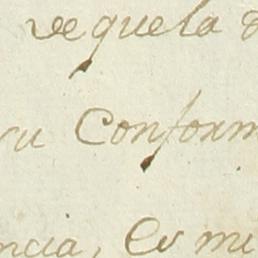 de que la
su Conform
ncia, es mi